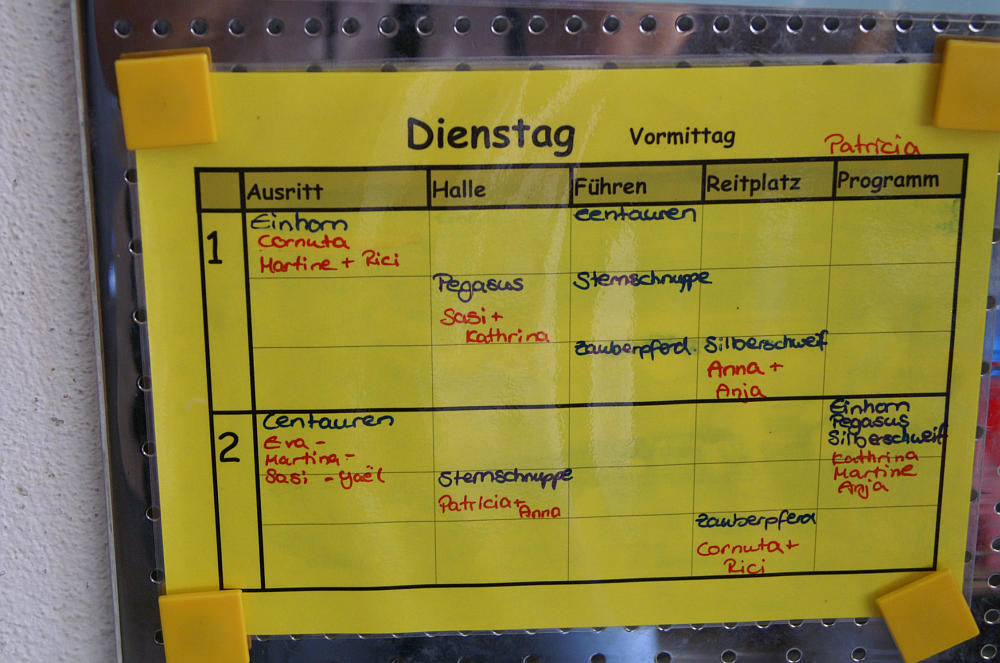 Dienstag Vormittag
Patricia
Ausritt Halle Führen Reitplatz Programm
1
Einhorn
Cornuta
Martine + Rici
Centauren
Pegasus
Sasi +
Kathrina
Sternschnuppe
Zauberpferd
Silberschweif
Anna +
Anja
2
Centauren
Eva -
Martina -
Sasi - Yaël
Sternschnuppe
Patricia +
Anna
Zauberpferd
Cornuta +
Rici
Einhorn
Pegasus
Silberschweif
Kathrina
Martine
Anja